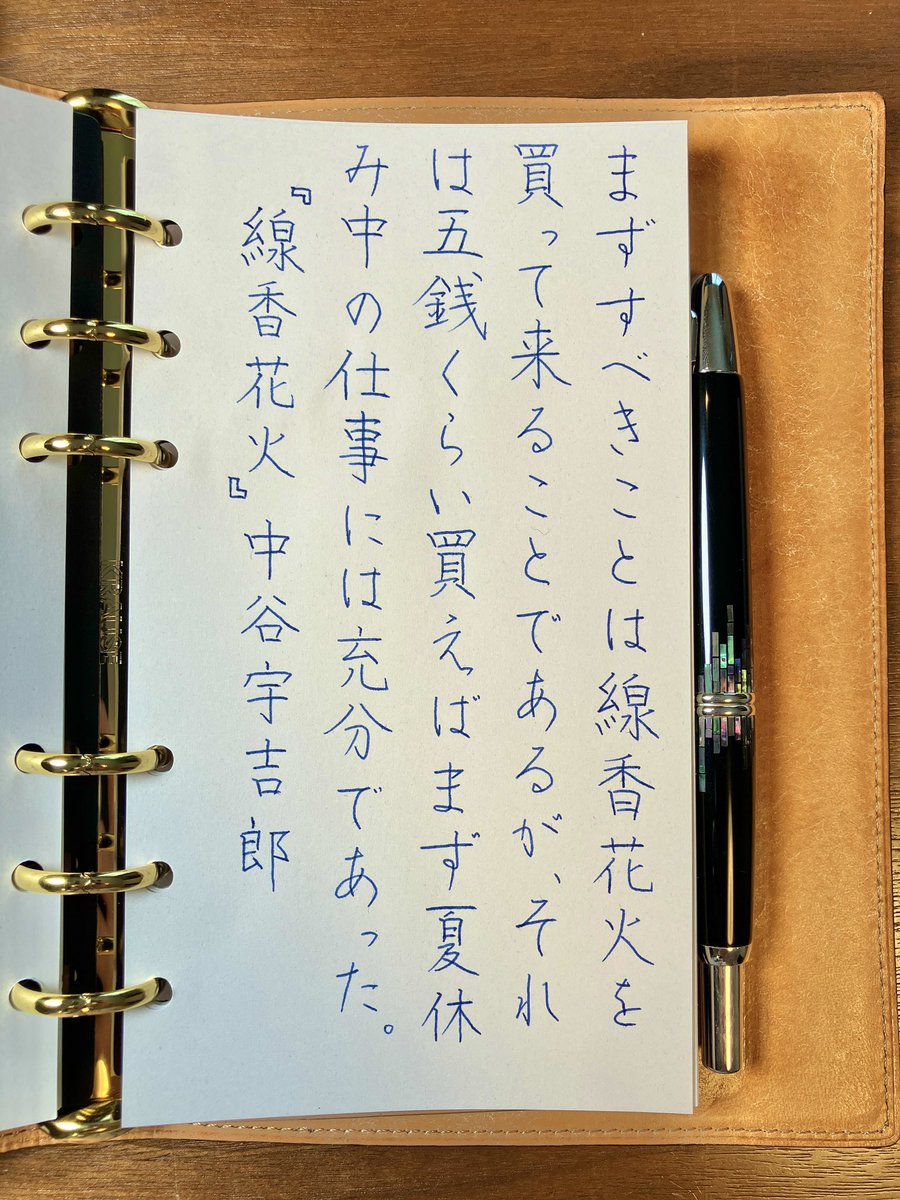 まずすべきことは線香花火を
買って来ることであるが、それ
は五銭くらい買えばまず夏休
み中の仕事には充分であった。
『線香花火』中谷宇吉郎
KRAUSE